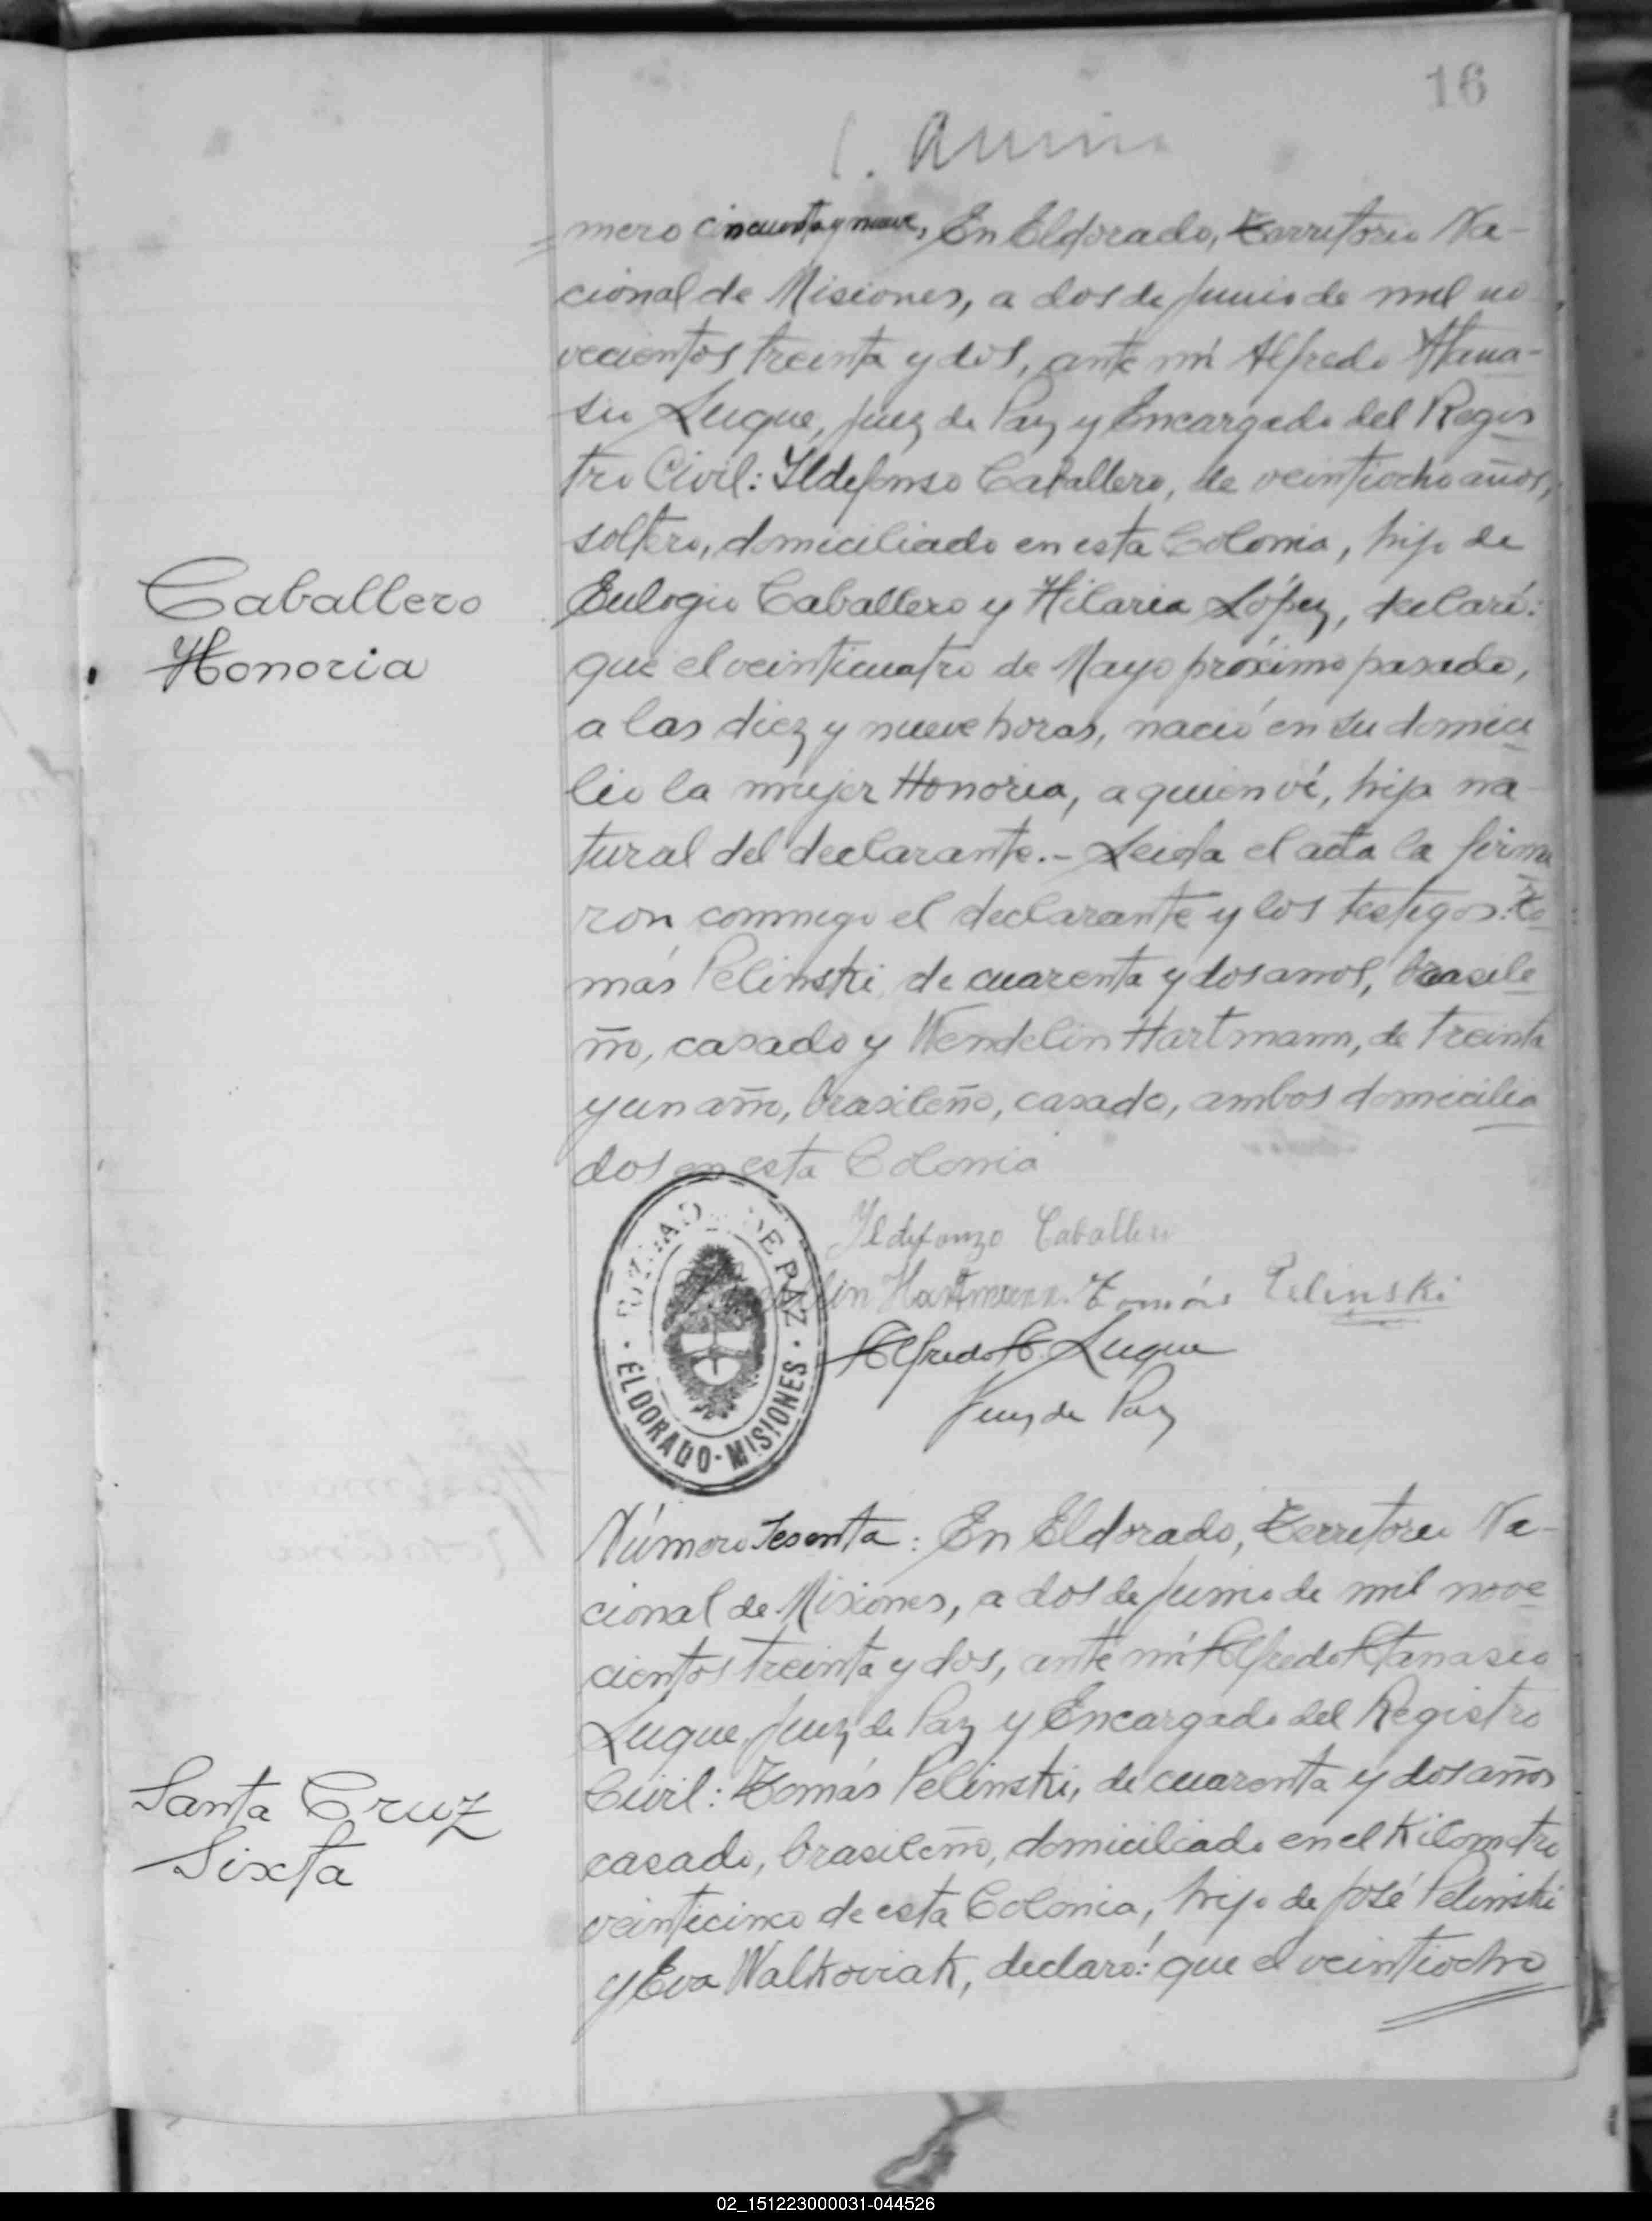 16
mero cincuenta y nueve, En Eldorado, Territorio Na-
cional de Misiones, a dos de Junio de mil no
vecientos treinta y dos, ante mí Alfredo Atana-
sio Luque, Juez de Paz y Encargado del Regis
tro Civil: Ildefonso Caballero, de veintiocho años,
soltero, domiciliado en esta Colonia, hijo de
Caballero
Honoria
Eulogio Caballero y Hilaria López, declaró:
que el veinticuatro de Mayo próximo pasado,
a las diez y nueve horas, nació en su domici
lio la mujer Honoria, a quien ví, hija na-
tural del declarante.- Leida el acta la firma
ron conmigo el declarante y los testigos: To
más Pelinski de cuarenta y dos años, brasile
ño, casado y Wendelin Hartmann, de treinta
y un año, brasileño, casado, ambos domicilia
dos en esta Colonia
Ildefonzo Caballero
lin Hartmann. Tomás Pelinski
Alfredo A. Luque
Juez de Paz
JUZGADO DE PAZ
· ELDORADO - MISIONES ·
Número Sesenta: En Eldorado, Territorio Na-
cional de Misiones, a dos de Junio de mil nove
cientos treinta y dos, ante mí Alfredo Atanasio
Luque, Juez de Paz y Encargado del Registro
Santa Cruz
Sixta
Civil: Tomás Pelinski, de cuarenta y dos años
casado, brasileño, domiciliado en el Kilometro
veinticinco de esta Colonia, hijo de José Pelinski
y Eva Walkoviak, declaró: que el veintiocho
02_151223000031-044526